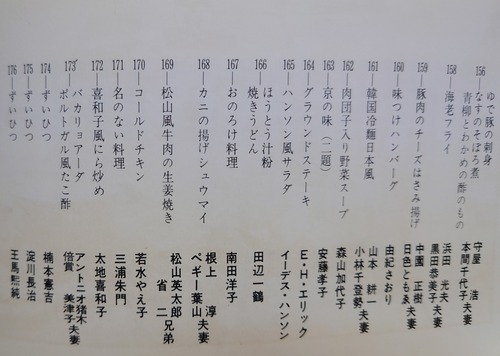 156―ゆで豚の刺身
なすのそぼろ煮
青柳とわかめの酢のもの
守屋 浩
本間千代子夫妻
158―海老フライ
浜田 光夫
黒田恭美子夫妻
159―豚肉のチーズはさみ揚げ
中園 正樹
日色ともゑ夫妻
160―味つけハンバーグ
由紀さおり
161―韓国冷麺日本風
山本 耕一
小林千登勢夫妻
162―肉団子入り野菜スープ
森山加代子
163―京の味(二題)
安藤孝子
164―グラウンドステーキ
E・H・エリック
165―ハンソン風サラダ
イーデス・ハンソン
166―ほうとう汁粉
焼きうどん
田辺一鶴
167―おのろけ料理
南田洋子
168―カニの揚げシュウマイ
根上 淳
ペギー葉山夫妻
169―松山風牛肉の生姜焼き
松山英太郎
省 二兄弟
170―コールドチキン
若水やえ子
171―名のない料理
三浦朱門
172―喜和子風にら炒め
太地喜和子
173―バカリョアーダ
ポルトガル風たこ酢
アントニオ猪木
倍賞 美津子夫妻
174―ずいひつ
楠本憲吉
175―ずいひつ
淀川長治
176―ずいひつ
王馬熙純